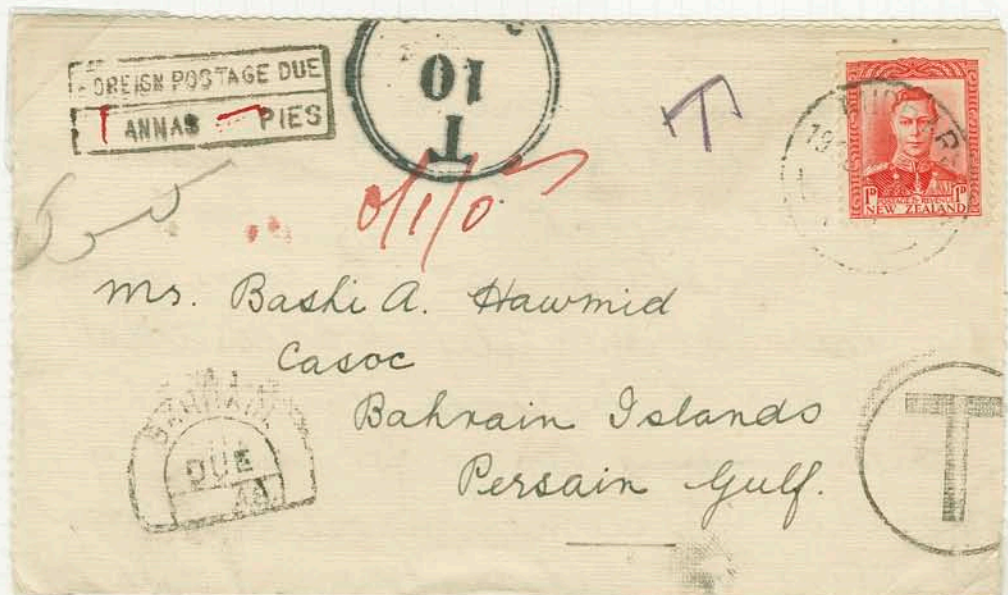 FOREIGN POSTAGE DUE
1 ANNAS — PIES
T
10
T
0/1/0
1D POSTAGE & REVENUE 1D
NEW ZEALAND
Mr. Bashi A. Hawmid
Casoc
Bahrain Islands
Persain Gulf.
BAHRAIN
DUE
T